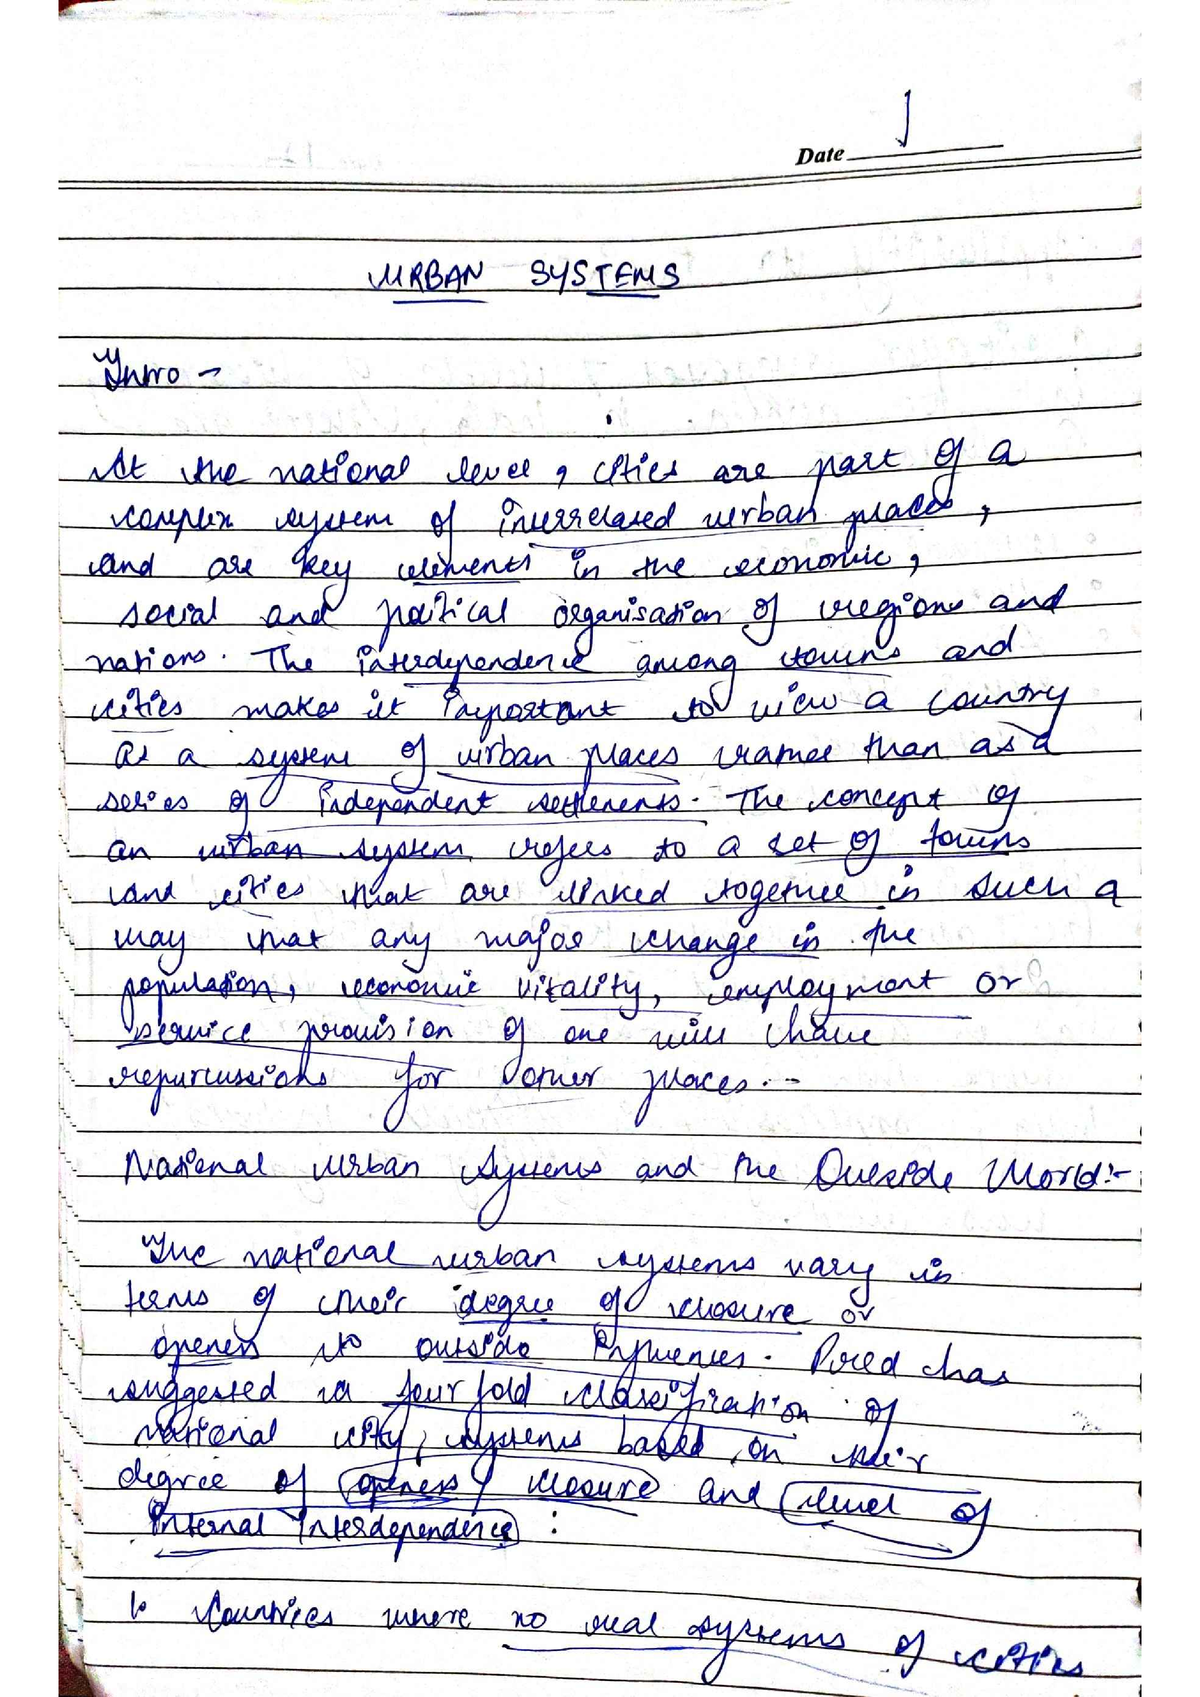 Date 1
URBAN SYSTEMS
Intro -
At the national level, cities are part of a
complex system of interrelated urban places,
and are key elements in the economic,
social and political organisation of regions and
nations. The interdependence among towns and
cities makes it important to view a country
as a system of urban places rather than as a
series of independent settlements. The concept of
an urban system refers to a set of towns
and cities that are linked together in such a
way that any major change in the
population, economic vitality, employment or
service provision of one will have
repurcussions for other places.-
National Urban Systems and the Outside World:-
The national urban systems vary in
terms of their degree of closure or
openess to outside influences. Pred has
suggested a four fold classification of
national city, systems based on their
degree of openess / closure and level of
internal interdependence :
1. Countries where no real systems of cities